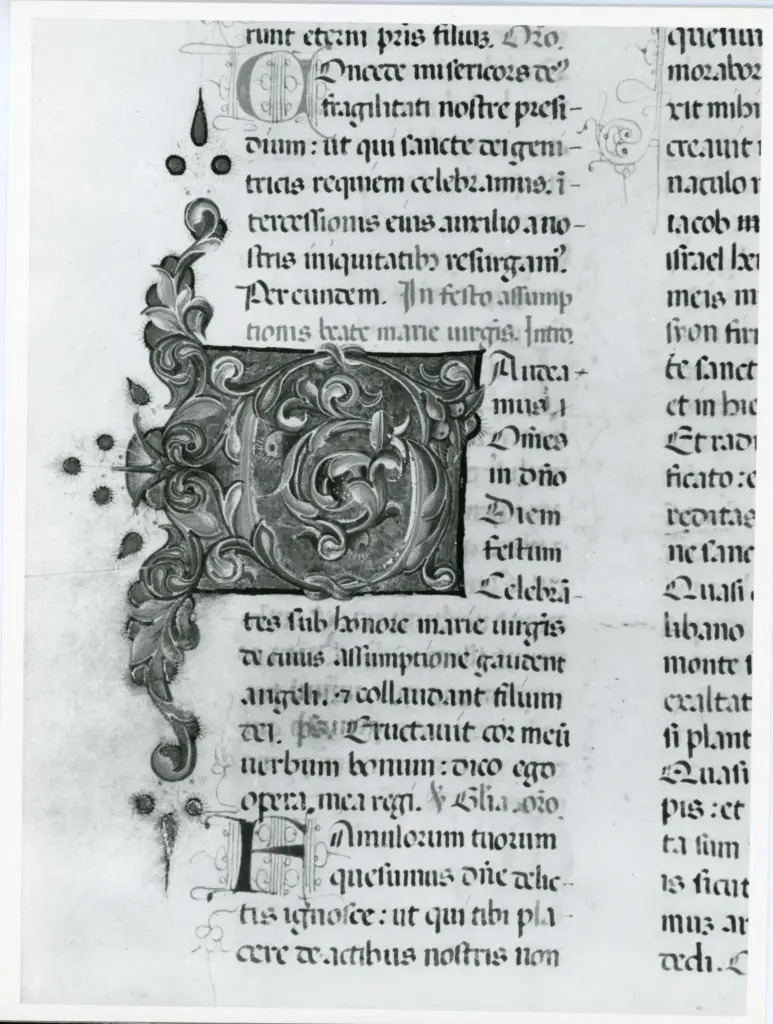 runt eterni pr̄is filius. Oro.
COncede misericors de⁹
fragilitati nostre presi-
dium: ut qui sancte dei geni-
tricis requiem celebramus. ī-
tercessionis eius auxilio a no-
stris iniquitatibꝫ resurgam⁹.
Per eundem. In festo assump
tionis beate marie uirg̅is. Intro.
GAudea-
mus
Om̅es
in dn̅o
Diem
festum
Celebrā-
tes sub honore marie uirg̅is
de cuius assumptione gaudent
angeli. ⁊ collaudant filium
dei. ps. Eructauit cor meū
uerbum bonum: dico ego
opera mea regi. ℣ Gl̅ia. oro.
FAmulorum tuorum
quesumus dn̅e delic-
tis ignosce: ut qui tibi pla-
cere de actibus nostris non
morabor
xit mihi
creauit
naculo
iacob
israel
meis
syon
te sanct
et in hie
Et radi
ficato: e
reditas
ne sanc
Quasi
libano
monte
exaltat
si plant
Quasi
pis: et
ta sum
is sicut
mus ar
dedi.